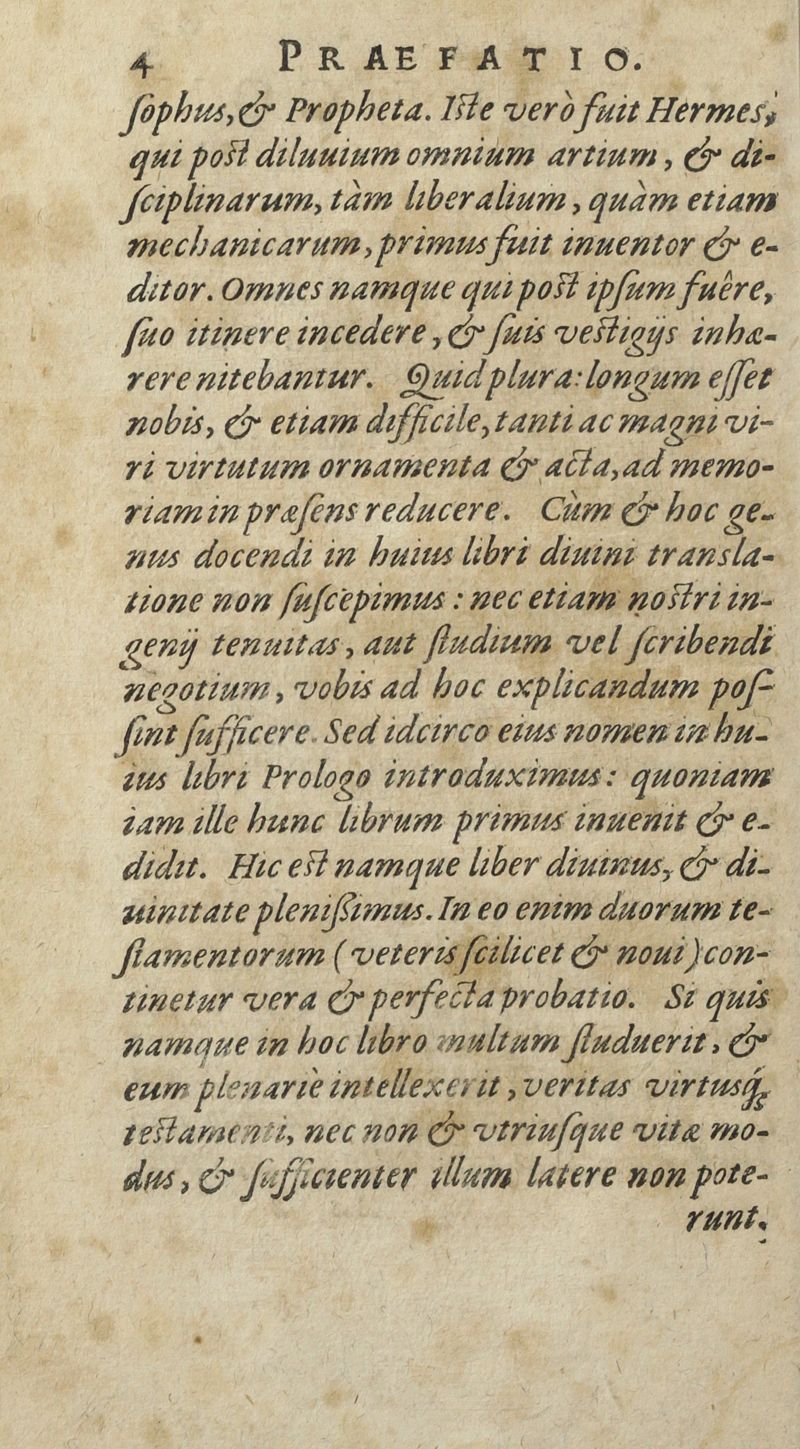 4 PRAEFATIO.
ſophus, & Propheta. Iſte verò fuit Hermes,
qui poſt diluuium omnium artium, & di-
ſciplinarum, tàm liberalium, quàm etiam
mechanicarum, primus fuit inuentor & e-
ditor. Omnes namque qui poſt ipſum fuêre,
ſuo itinere incedere, & ſuis veſtigijs inhæ-
rere nitebantur. Quid plura: longum eſſet
nobis, & etiam difficile, tanti ac magni vi-
ri virtutum ornamenta & acta, ad memo-
riam in præſens reducere. Cùm & hoc ge-
nus docendi in huius libri diuini transla-
tione non ſuſcepimus: nec etiam noſtri in-
genij tenuitas, aut ſtudium vel ſcribendi
negotium, vobis ad hoc explicandum poſ-
ſint ſufficere. Sed idcirco eius nomen in hu-
ius libri Prologo introduximus: quoniam
iam ille hunc librum primus inuenit & e-
didit. Hic eſt namque liber diuinus, & di-
uinitate pleniſſimus. In eo enim duorum te-
ſtamentorum (veteris ſcilicet & noui) con-
tinetur vera & perfecta probatio. Si quis
namque in hoc libro multum ſtuduerit, &
eum plenariè intellexerit, veritas virtusq́;
teſtamenti, nec non & vtriuſque vitæ mo-
dus, & ſufficienter illum latere non pote-
runt.